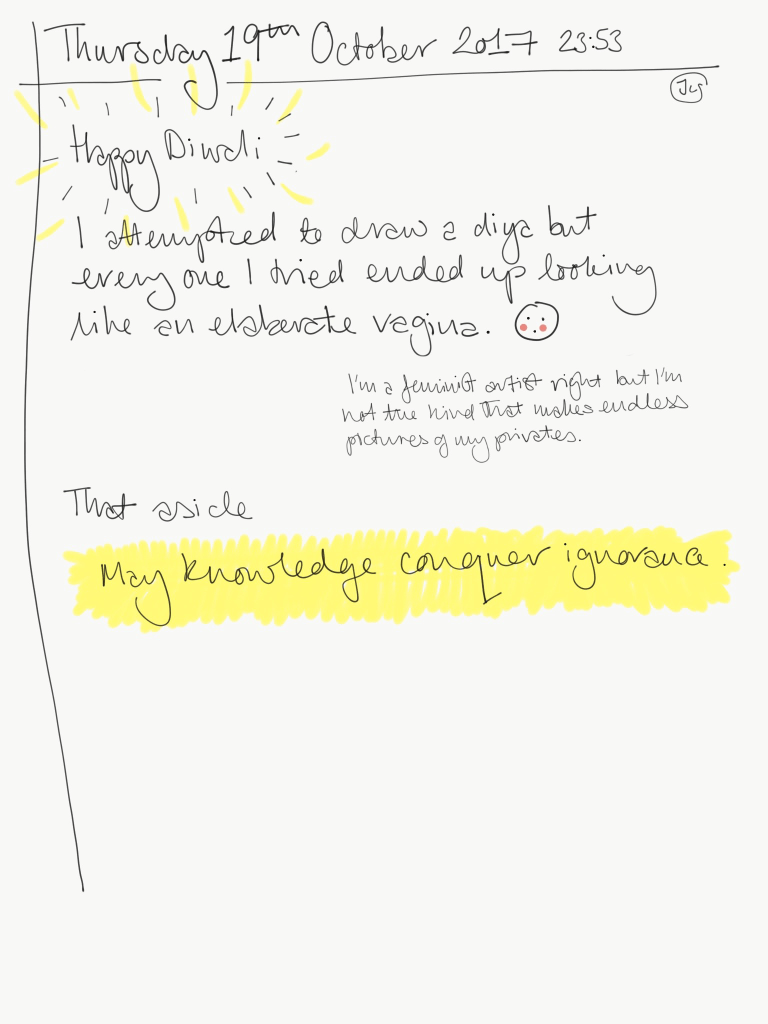 Thursday 19th October 2017 23:53
Jcg
Happy Diwali
I attempted to draw a diya but
every one I tried ended up looking
like an elaborate vagina.
I'm a feminist artist right but I'm
not the kind that makes endless
pictures of my privates.
That aside
May knowledge conquer ignorance.